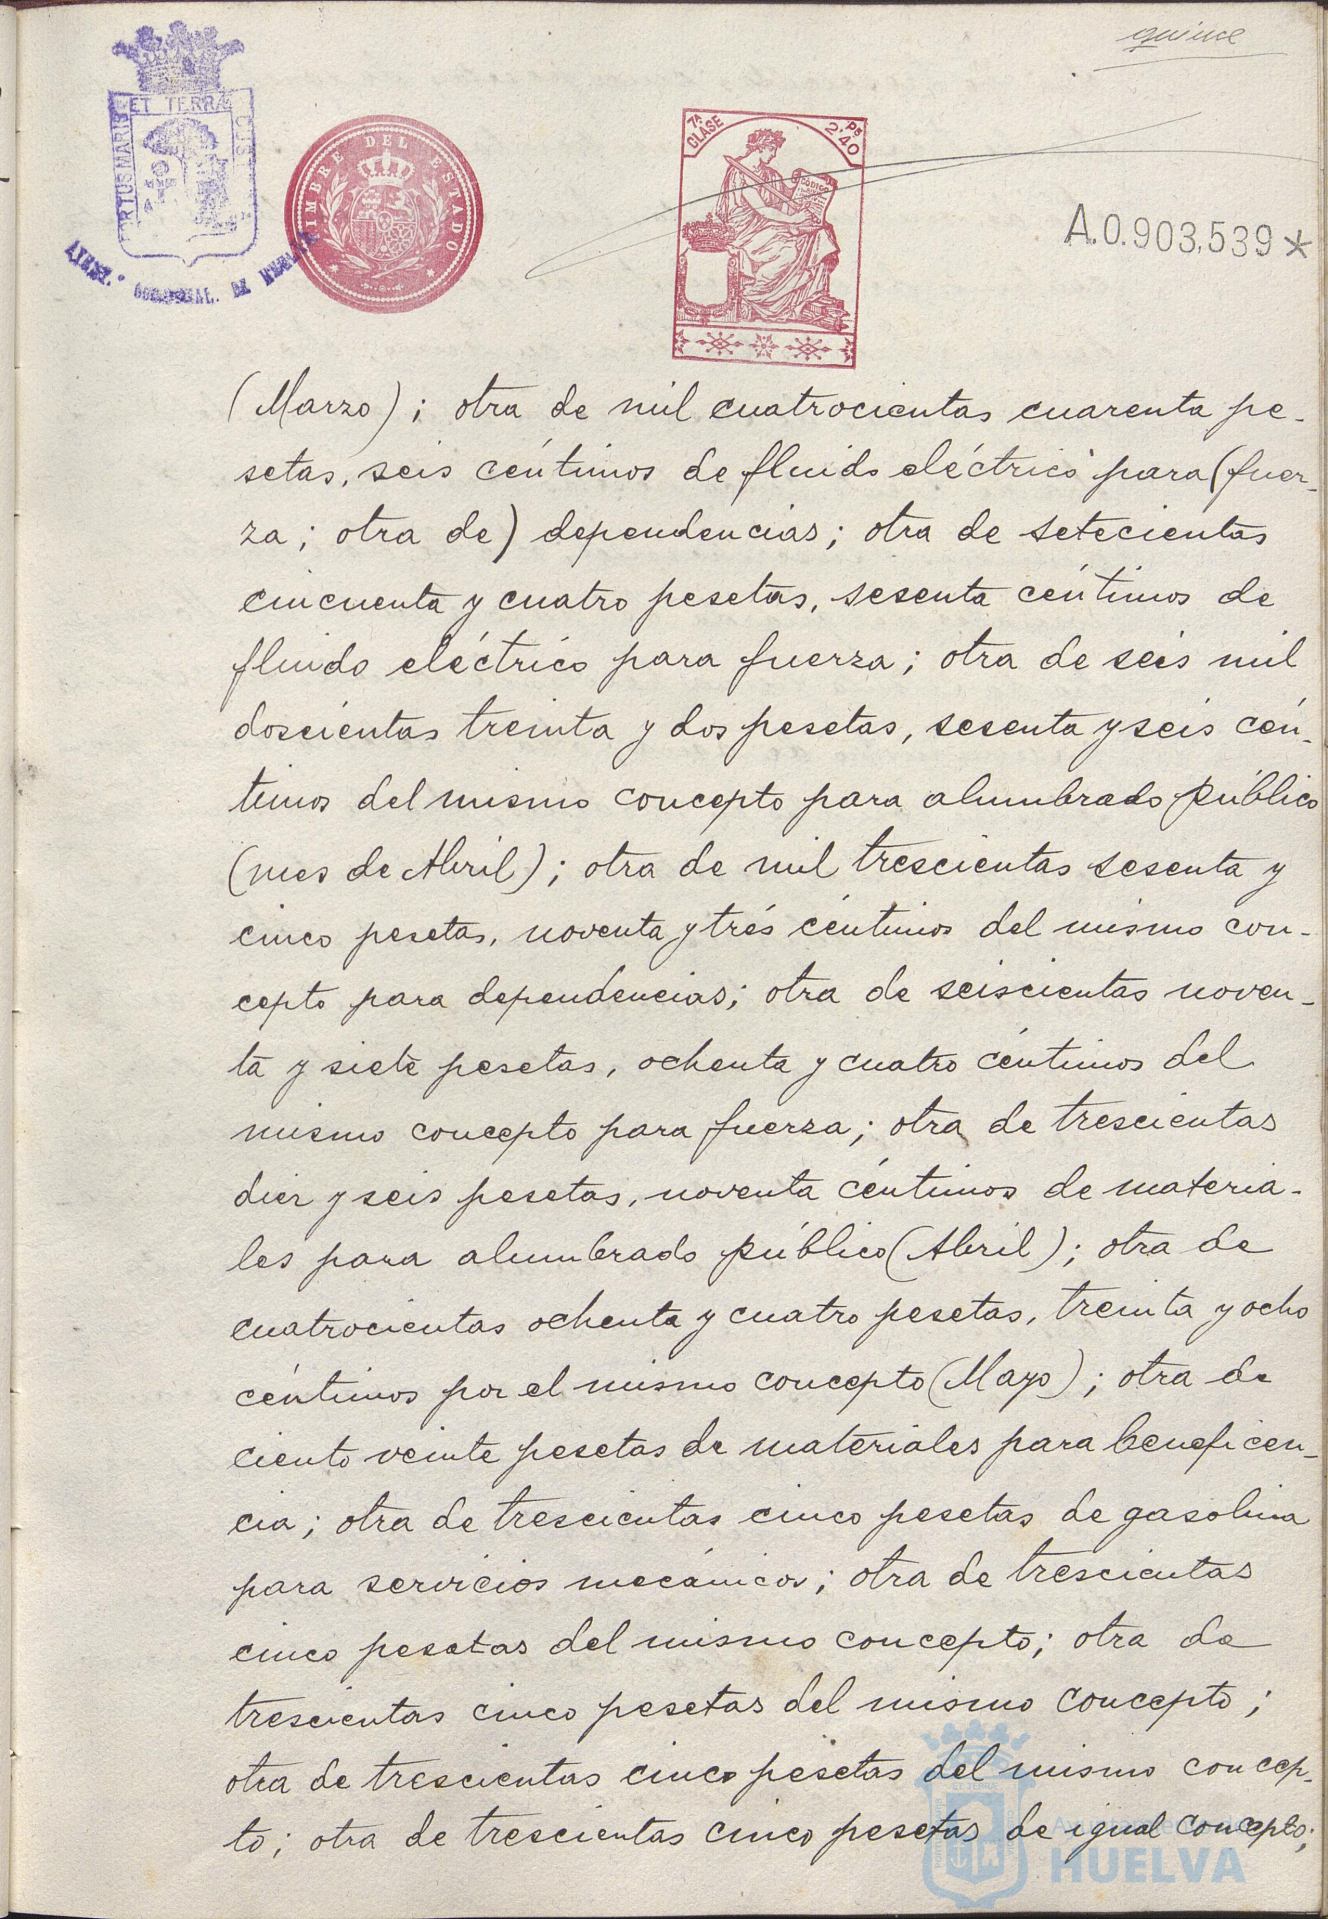 quince
PORTUS MARIS ET TERRÆ CUSTODIA
AYUNT.º CONSTITUCIONAL. DE HUELVA
TIMBRE DEL ESTADO
7ª CLASE
2'40 Ps
CODIGO
A.0.903,539*
(Marzo); otra de mil cuatrocientas cuarenta pe-
setas, seis céntimos de fluido eléctrico para (fuer-
za; otra de) dependencias; otra de setecientas
cincuenta y cuatro pesetas, sesenta céntimos de
fluido eléctrico para fuerza; otra de seis mil
doscientas treinta y dos pesetas, sesenta y seis cén-
timos del mismo concepto para alumbrado público
(mes de Abril); otra de mil trescientas sesenta y
cinco pesetas, noventa y trés céntimos del mismo con-
cepto para dependencias; otra de seiscientas noven-
ta y siete pesetas, ochenta y cuatro céntimos del
mismo concepto para fuerza; otra de trescientas
diez y seis pesetas, noventa céntimos de materia-
les para alumbrado público (Abril); otra de
cuatrocientas ochenta y cuatro pesetas, treinta y ocho
céntimos por el mismo concepto (Mayo); otra de
ciento veinte pesetas de materiales para beneficen-
cia; otra de trescientas cinco pesetas de gasolina
para servicios mecánicos; otra de trescientas
cinco pesetas del mismo concepto; otra de
trescientas cinco pesetas del mismo concepto;
otra de trescientas cinco pesetas del mismo concep-
to; otra de trescientas cinco pesetas de igual concepto;
HUELVA